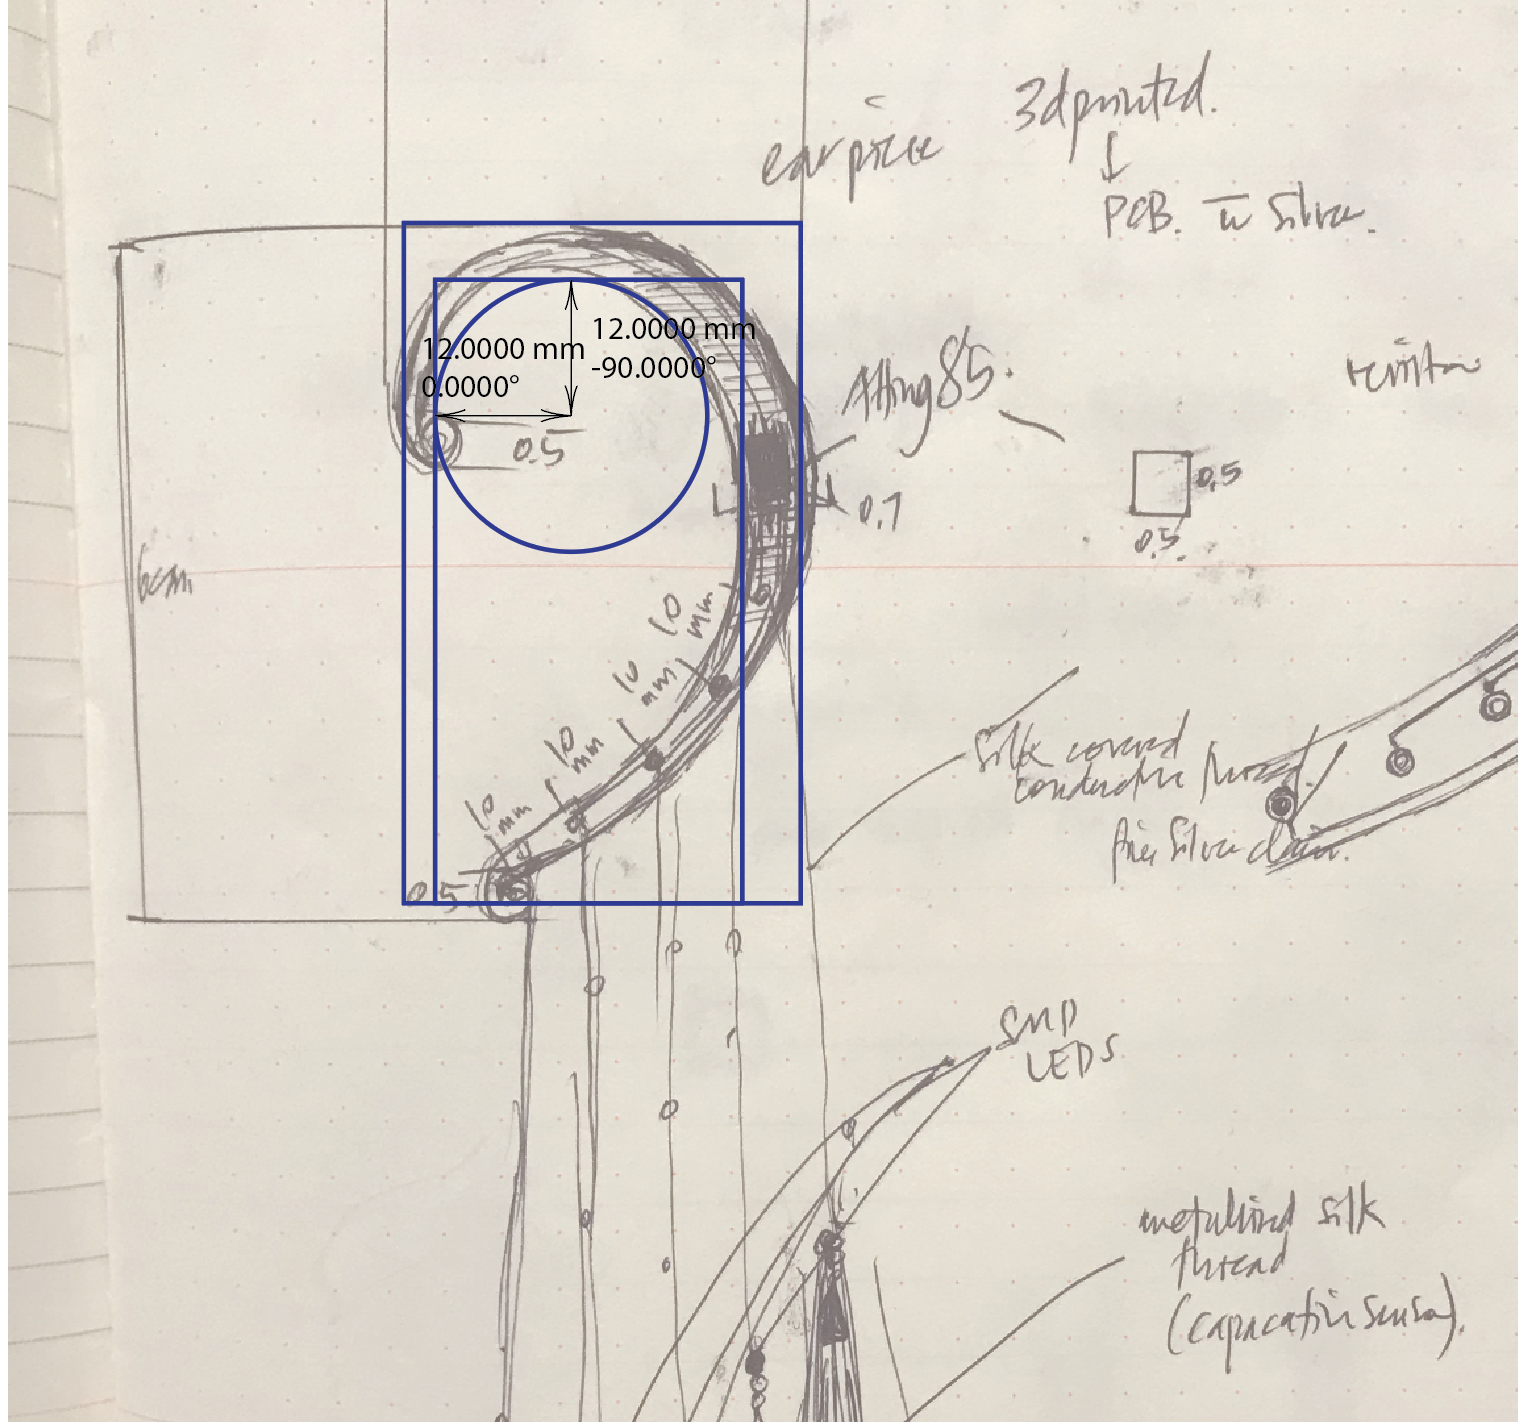 3dprinted.
ear piece
PCB. w Silver.
12.0000 mm
-90.0000°
12.0000 mm
0.0000°
Attiny85.
0.5
0.5
0.7
0.5
6cm
10
mm
10
mm
10
mm
10
mm
0.5
Silk covered
conductive thread
fine Silver chain.
SMD
LEDS
metallized silk
thread
(capacative sensor).